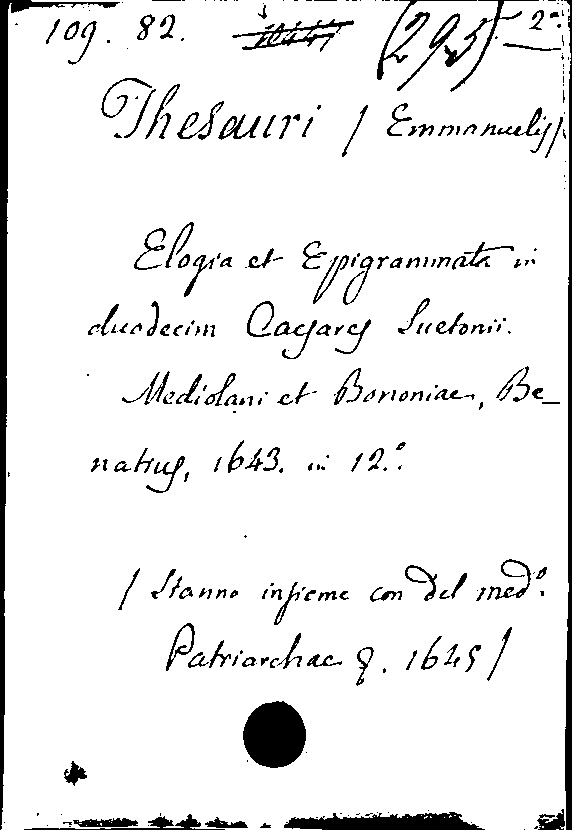 109. 82. (295) 2º
Thesauri / Emmanuelis /
Elogia et Epigrammata in
duodecim Caesares Suetonii.
Mediolani et Bononiae, Be_
natius, 1643. in 12.º
/ Stanno insieme con Del medº.
Patriarchae &. 1645 /